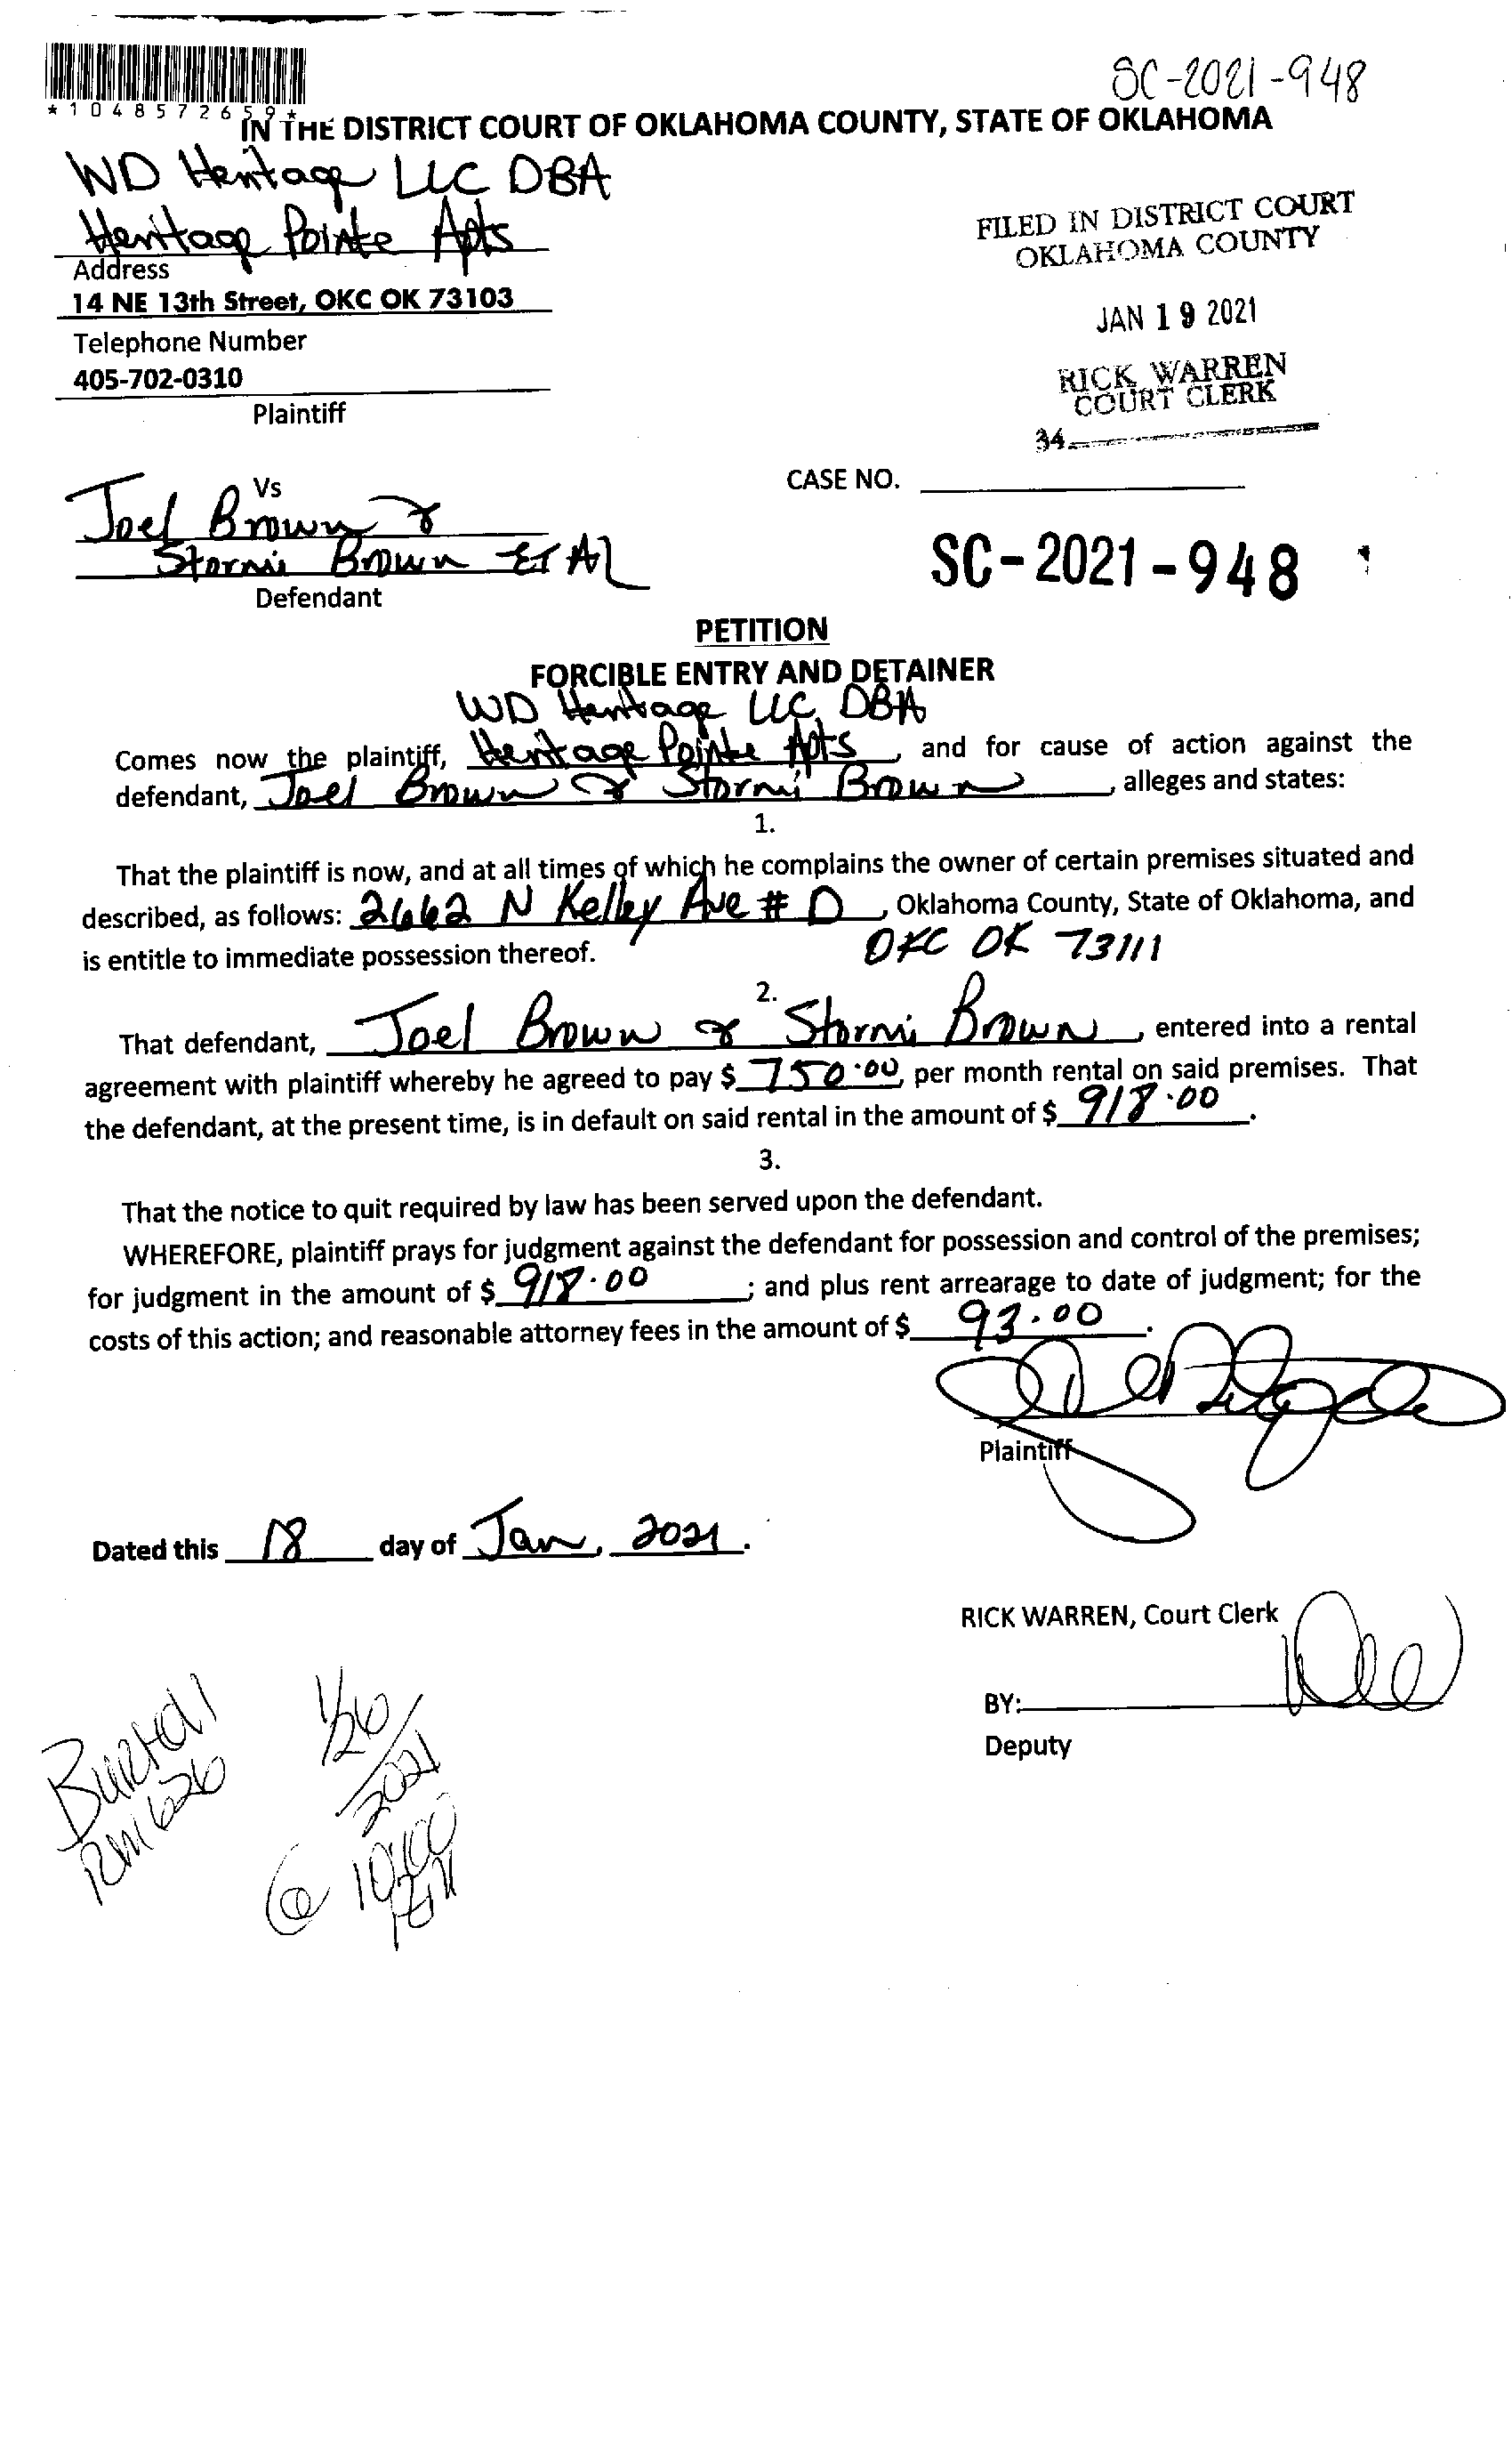 SC-2021-948
*1048572659*
IN THE DISTRICT COURT OF OKLAHOMA COUNTY, STATE OF OKLAHOMA
WD Heritage LLC DBA
Heritage Pointe Apts
Address
14 NE 13th Street, OKC OK 73103
Telephone Number
405-702-0310
Plaintiff
FILED IN DISTRICT COURT
OKLAHOMA COUNTY
JAN 19 2021
RICK WARREN
COURT CLERK
34
Vs
Joel Brown &
Stormi Brown ET AL
Defendant
CASE NO.
SC-2021-948
PETITION
FORCIBLE ENTRY AND DETAINER
WD Heritage LLC DBA
Comes now the plaintiff, Heritage Pointe Apts, and for cause of action against the
defendant, Joel Brown & Stormi Brown, alleges and states:
1.
That the plaintiff is now, and at all times of which he complains the owner of certain premises situated and
described, as follows: 2662 N Kelley Ave # D, Oklahoma County, State of Oklahoma, and
is entitle to immediate possession thereof. OKC OK 73111
2.
That defendant, Joel Brown & Stormi Brown, entered into a rental
agreement with plaintiff whereby he agreed to pay $ 750.00, per month rental on said premises. That
the defendant, at the present time, is in default on said rental in the amount of $ 918.00.
3.
That the notice to quit required by law has been served upon the defendant.
WHEREFORE, plaintiff prays for judgment against the defendant for possession and control of the premises;
for judgment in the amount of $ 918.00; and plus rent arrearage to date of judgment; for the
costs of this action; and reasonable attorney fees in the amount of $ 93.00.
Plaintiff
Dated this 18 day of Jan, 2021.
RICK WARREN, Court Clerk
BY:
Deputy
Rm 626
1/26/2021
@ 10:00